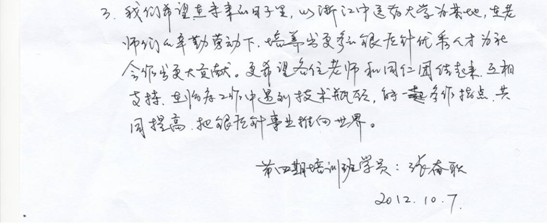 3. 我们希望在未来的日子里，以浙江中医药大学为基地，在老
师们的辛勤劳动下，培养出更多的银质针优秀人才为社
会作出更大贡献。更希望各位老师和同仁团结起来，互相
支持，在临床工作中遇到技术瓶颈，能一起合作探点，共
同提高，把银质针事业推向世界。
第四期培训班学员：张奋耿
2012.10.7.